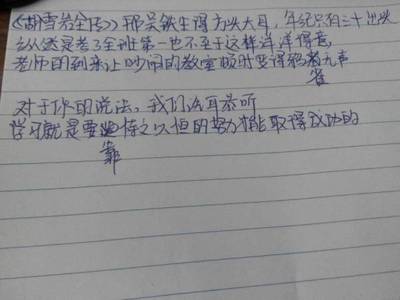 《胡雪岩全传》那吴铁生得方头大耳,年纪只有三十出头
纵然是考了全班第一也不至于这样洋洋得意
老师的到来让吵闹的教室顿时变得鸦无声
雀
对于你的说法,我们洗耳恭听
学习就是要持之以恒的努力才能取得成功的
靠